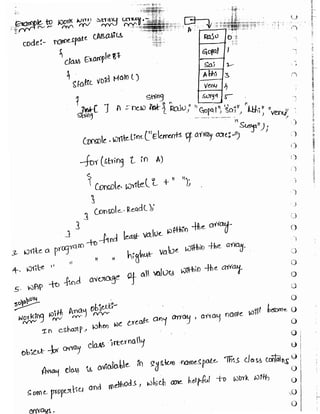 Example to work with string array:-
A
Raju 0
Gopal 1
Sai 2
Athi 3
Venu 4
Surya 5
code:- namespace CABasics
{
class Example 87
{
static void Main()
{
string
string [ ] A = new {"Raju", "Gopal", "Sai", "Athi", "venu",
"Surya"};
Console.WriteLine("Elements of array are:-");
for (string i in A)
{
Console.write(i + " ");
}
Console.Read();
}
}
}
3. write a program to find least value within the array.
4. write " " " " highest value within the array.
5. WAP to find average of all values within the array.
Working with Array objects:-
In csharp, when we create any array, array name will become
object for array class internally
Array class is available in system namespace. This class contains
some properties and methods, which are helpful to work with
arrays.